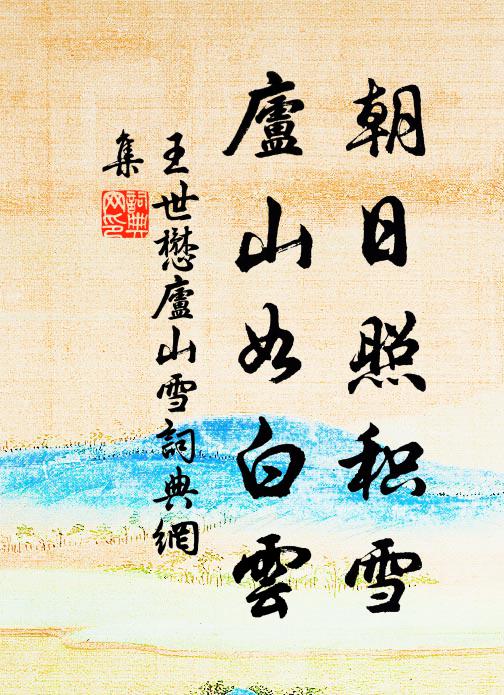 朝日照积雪
廬山如白雲
王世懋廬山雪詞典網
集
詞典
网印